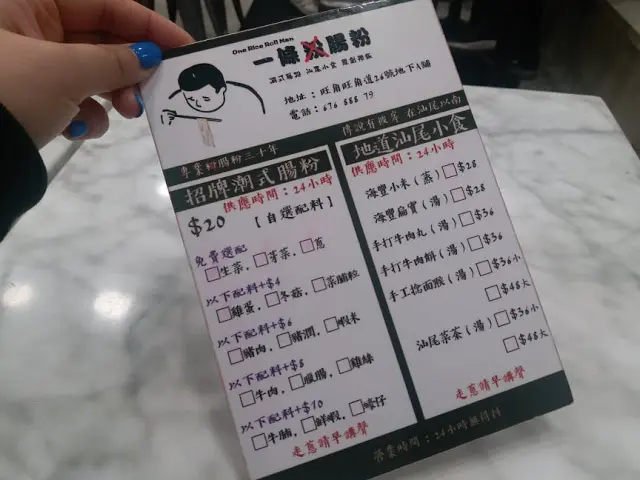 One Rice Roll Man
一條 腸粉
潮式腸粉 汕尾小食
地址：旺角旺角道26號地下A舖
電話：676 888 79
專業粉腸粉三十年
傳說有彼岸 在汕尾以南
招牌潮式腸粉
供應時間：24小時
$20 【自選配料】
免費選配
□生菜，□芽菜，□蔥
以下配料+$4
□雞蛋，□冬菇，□菜脯粒
以下配料+$6
□豬肉，□豬潤，□蝦米
以下配料+$8
□牛肉，□臘腸，□雞絲
以下配料+$10
□牛腩，□鮮蝦，□蠔仔
走蔥請早講聲
地道汕尾小食
供應時間：24小時
海豐小米(蒸)□$28
海豐扁食(湯)□$28
手打牛肉丸(湯)□$36
手打牛肉餅(湯)□$36
手工捻面猴(湯)□$36小
□$48大
汕尾菜茶(湯)□$36小
□$48大
走蔥請早講聲
營業時間：24小時無得抖